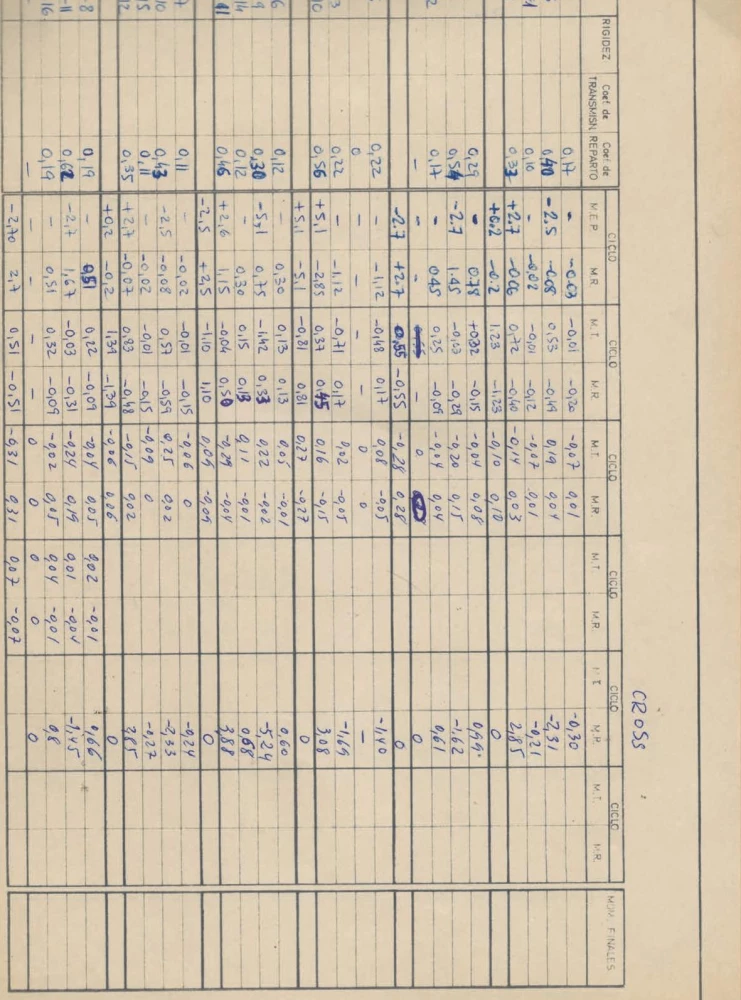 CROSS
CICLO CICLO CICLO CICLO CICLO CICLO
RIGIDEZ Coef. de TRANSMISN. Coef. de REPARTO M.E.P. M.R. M.T. M.R. M.T. M.R. M.T. M.R. M.T. M.R. M.T. M.R. MOM. FINALES
0,17 - -0.03 -0,01 -0,20 -0,07 0,01 -0,30
0,40 -2.5 -0.08 0,53 -0,49 0,19 0,04 -2,31
0,10 - -0.02 -0,01 -0,12 -0,07 0,01 -0,21
0.33 +2.7 -0.06 0,72 -0,40 -0,14 0,03 2,85
+0.2 -0.2 1.23 -1.23 -0,10 0,10 0
0,29 - 0.78 +0.32 -0,15 -0,04 0,08 0,99
0,54 -2.7 1.45 -0,03 -0,29 -0,20 0,15 -1,62
0,17 - 0.45 0,25 -0,09 -0,04 0,04 0,61
- - - - 0 0
-2.7 +2.7 0,55 -0,55 -0,28 0,28 0
0,22 - -1,12 -0,48 0,17 0,08 -0,05 -1,40
0 - - - - 0 0 -
0,22 - -1,12 -0,71 0,17 0,02 -0,05 -1,69
0,56 +5,1 -2,85 0,37 0,45 0,16 -0,15 3,08
+5,1 -5,1 -0,81 0,81 0,27 -0,27 0
0,12 - 0,30 0,13 0,13 0,05 -0,01 0,60
0,30 -5,1 0,75 -1,42 0,33 0,22 -0,02 -5,24
0,12 - 0,30 0,15 0,13 0,11 -0,01 0,68
0,46 +2,6 1,15 -0,04 0,50 -0,29 -0,04 3,88
-2,5 +2,5 -1,10 1,10 0,09 -0,09 0
0,11 - -0,02 -0,01 -0,15 -0,06 0 -0,24
0,43 -2,5 -0,08 0,57 -0,59 0,25 0,02 -2,33
0,11 - -0,02 -0,01 -0,15 -0,09 0 -0,27
0,35 +2,7 -0,07 0,83 -0,48 -0,15 0,02 2,85
+0,2 -0,2 1,39 -1,39 -0,06 0,06 0
0,19 - 0,51 0,22 -0,09 -0,04 0,05 0,02 -0,01 0,66
0,62 -2,7 1,67 -0,03 -0,31 -0,24 0,19 0,01 -0,04 -1,45
0,19 - 0,51 0,32 -0,09 -0,02 0,05 0,04 -0,01 0,8
- - - - - 0 0 0 0 0
-2,70 2,7 0,51 -0,51 -0,31 0,31 0,07 -0,07